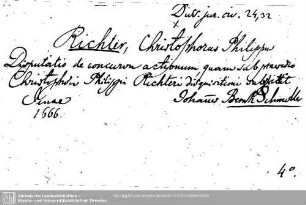 Diss. jur. civ. 24,32
x
Richter, Christophorus Philippus
Disputatio de concursu actionum quam sub praesidio
Christophori Philippi Richteri disquisitioni
Jenae Johann
1666.
4°
Sächsische Landesbibliothek -
Staats- und Universitätsbibliothek Dresden